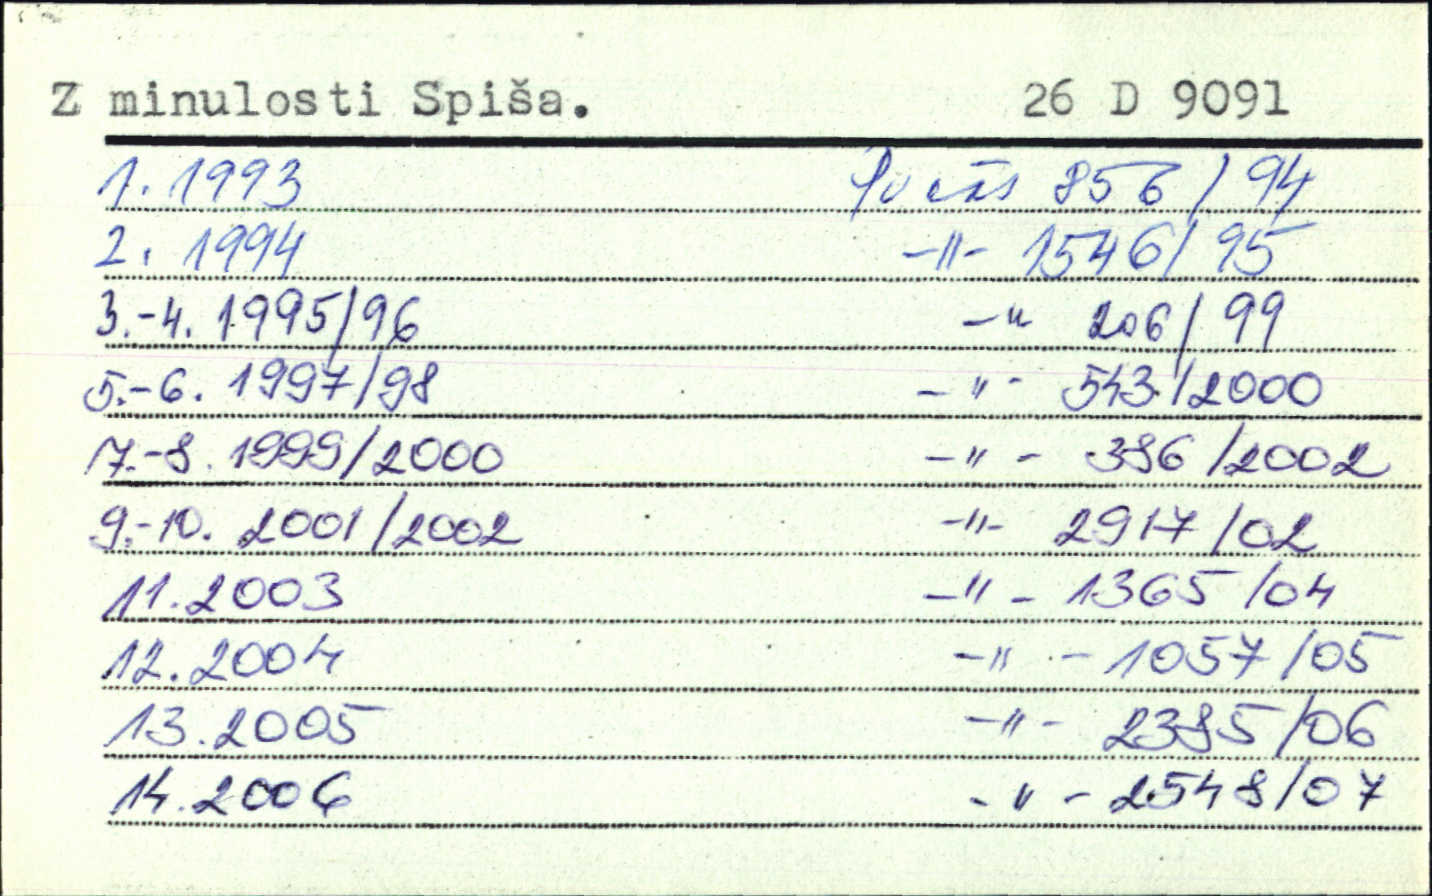 Z minulosti Spiša. 26 D 9091
1. 1993 856/94
2. 1994 -"- 1546/95
3.-4. 1995/96 -" 206/99
5.-6. 1997/98 -"- 543/2000
7.-8. 1999/2000 -"- 386/2002
9.-10. 2001/2002 -"- 2917/02
11. 2003 -"- 1365/04
12. 2004 -"- 1057/05
13. 2005 -"- 2385/06
14. 2006 -"- 2548/07